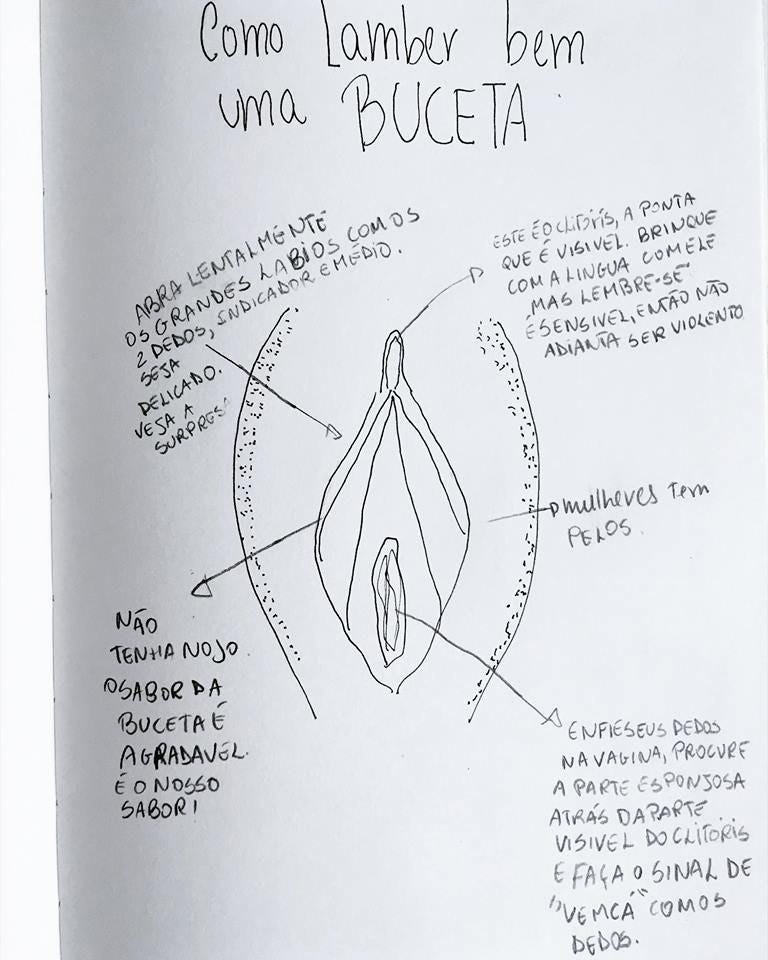 Como Lamber bem
uma BUCETA
ABRA LENTALMENTE
OS GRANDES LABIOS COM OS
2 DEDOS, INDICADOR E MÉDIO.
SEJA
DELICADO.
VEJA A
SURPRESA
ESTE É O CLITÓRIS, A PONTA
QUE É VISIVEL. BRINQUE
COM A LINGUA COM ELE
MAS LEMBRE-SE
É SENSIVEL, ENTÃO NÃO
ADIANTA SER VIOLENTO
mulheres tem
PELOS.
NÃO
TENHA NOJO.
O SABOR DA
BUCETA É
AGRADAVEL.
É O NOSSO
SABOR!
ENFIE SEUS DEDOS
NA VAGINA, PROCURE
A PARTE ESPONJOSA
ATRÁS DA PARTE
VISIVEL DO CLITÓRIS
E FAÇA O SINAL DE
"VEM CÁ" COM OS
DEDOS.